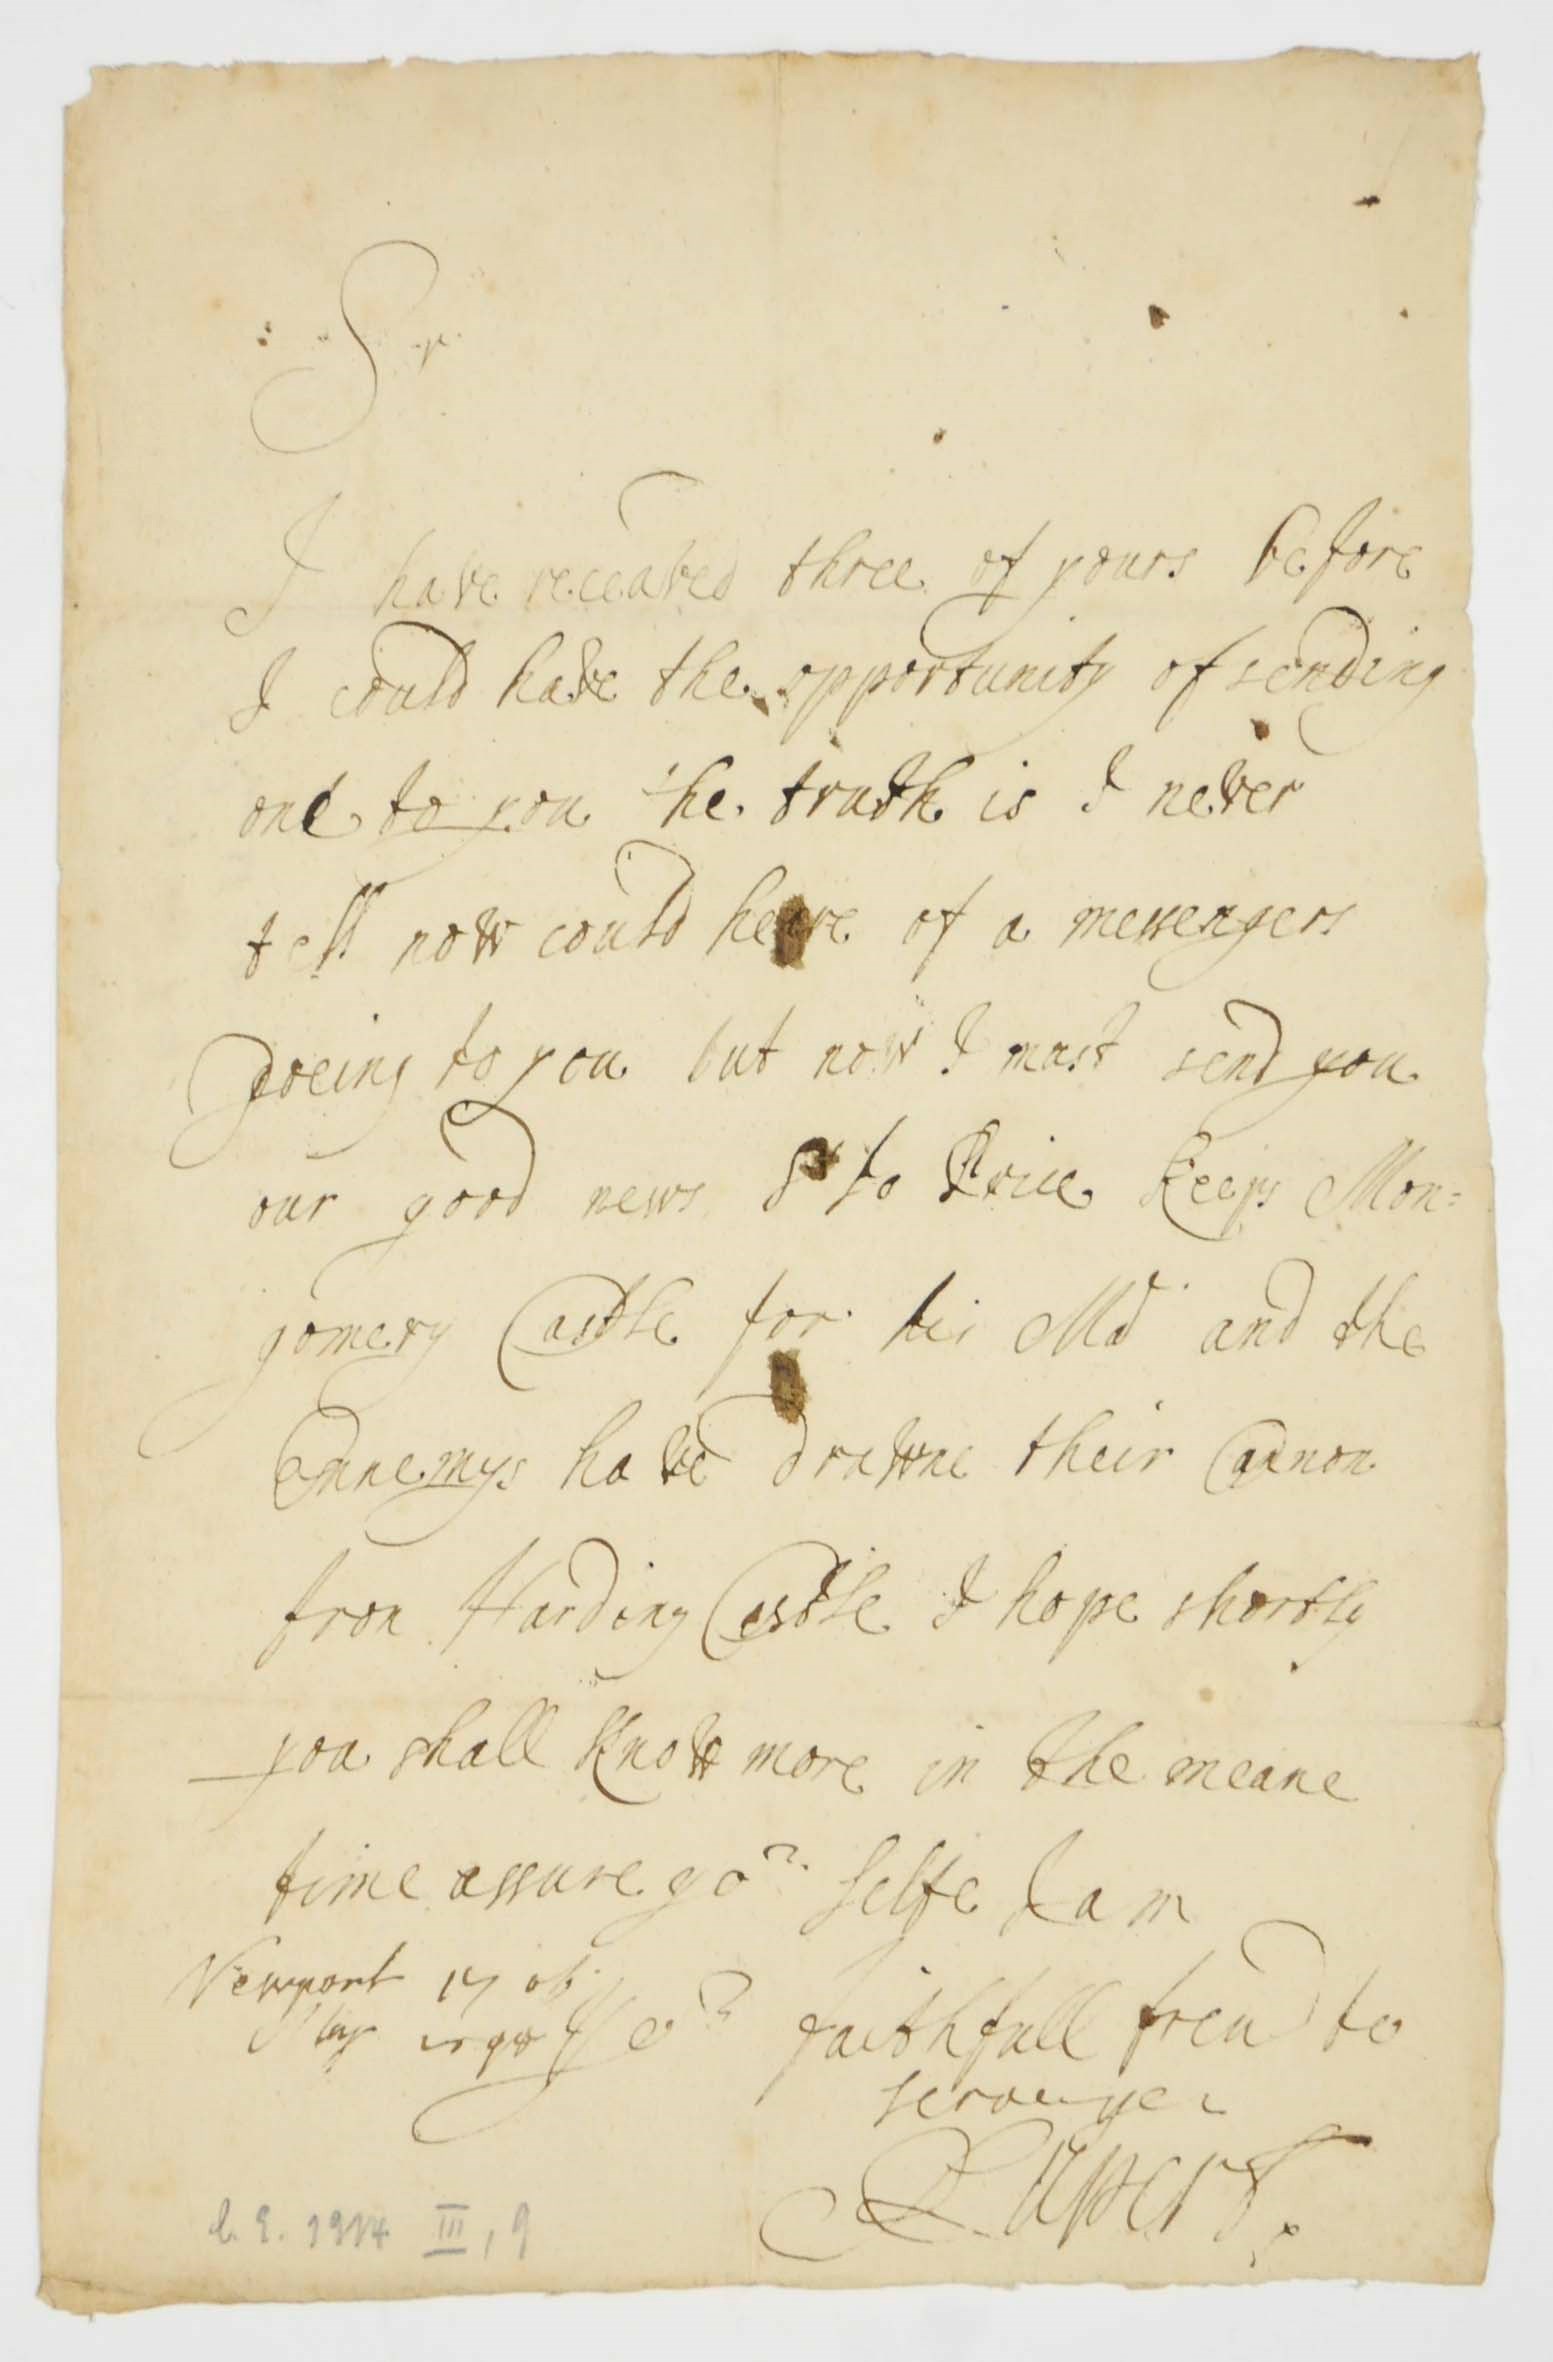 Sr
I have receaved three of yours before
I could have the opportunity of sending
one to you the truth is I never
tell now could heare of a messengers
goeing to you but now I must send you
our good news Sr Jo Price keeps Mon=
gomery Castle for his Ma and the
Ennemys have drawne their Cannon
from Harding Castle I hope shortly
you shall know more in the meane
time assure yor selfe I am
Newport 17 of
yor faithfull frend to
serve you
Rupert.
l. g. 1914 III, 9